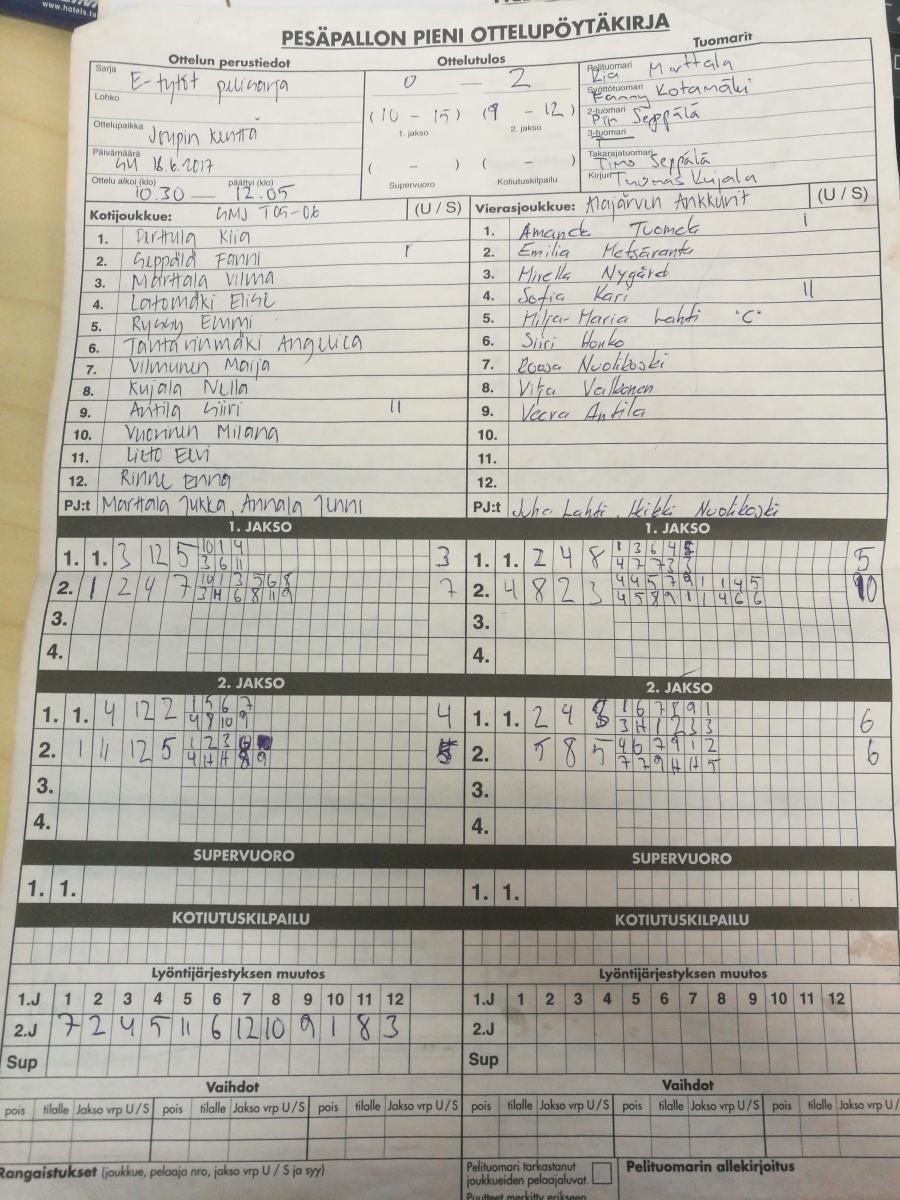 www.hotels.ta
PESÄPALLON PIENI OTTELUPÖYTÄKIRJA
Ottelun perustiedot Ottelutulos Tuomarit
Sarja E-tytöt pelisarja 0 — 2 Pelituomari Kia Marttala
Lohko Syöttötuomari Fanny Kotamäki
(10 - 15) (9 - 12) 2-tuomari Piia Seppälä
Ottelupaikka Joupin kenttä 1. jakso 2. jakso 3-tuomari
Päivämäärä su 18.6.2017 ( - ) ( - ) Takarajatuomari Timo Seppälä
Ottelu alkoi (klo) 10.30 — päättyi (klo) 12.05 Supervuoro Kotiutuskilpailu Kirjuri Tuomas Kujala
Kotijoukkue: SMJ T05-06 (U / S) Vierasjoukkue: Alajärven Ankkurit (U / S)
1. Perttula Kiia 1. Amanda Tuomela I
2. Seppälä Fanni I 2. Emilia Metsäranta
3. Marttala Vilma 3. Mirella Nygård
4. Latomäki Elise 4. Sofia Kari II
5. Ryyny Emmi 5. Milja-Maria Lahti "C"
6. Tantarinmäki Angelica 6. Siiri Honko
7. Vilmunen Maija 7. Roosa Nuolikoski
8. Kujala Nella 8. Vilja Valkonen
9. Antila Siiri II 9. Veera Antila
10. Vuorinen Milana 10.
11. Lieto Elvi 11.
12. Rinne Enna 12.
PJ:t Marttala Jukka, Annala Jenni PJ:t Juha Lahti, Heikki Nuolikoski
1. JAKSO 1. JAKSO
1. 1. 3 12 5 10 1 4 3 1. 1. 2 4 8 1 3 6 4 5 5
3 6 11 4 7 7 3 3
2. 1 2 4 7 10 1 3 5 6 8 7 2. 4 8 2 3 4 4 5 7 9 1 1 4 5 10
3 H 6 8 11 9 4 5 8 9 1 1 4 6 6
3. 3.
4. 4.
2. JAKSO 2. JAKSO
1. 1. 4 12 2 1 5 6 7 4 1. 1. 2 4 8 1 6 7 8 9 1 6
4 8 10 9 3 H 1 2 3 3
2. 1 11 12 5 1 2 3 5 2. 5 8 5 4 6 7 9 1 2 6
4 H H 8 9 7 7 9 H H 5
3. 3.
4. 4.
SUPERVUORO SUPERVUORO
1. 1. 1. 1.
KOTIUTUSKILPAILU KOTIUTUSKILPAILU
Lyöntijärjestyksen muutos Lyöntijärjestyksen muutos
1.J 1 2 3 4 5 6 7 8 9 10 11 12 1.J 1 2 3 4 5 6 7 8 9 10 11 12
2.J 7 2 4 5 11 6 12 10 9 1 8 3 2.J
Sup Sup
Vaihdot Vaihdot
pois tilalle Jakso vrp U / S pois tilalle Jakso vrp U / S pois tilalle Jakso vrp U / S pois tilalle Jakso vrp U / S pois tilalle Jakso vrp U / S pois tilalle Jakso vrp U /
Rangaistukset (joukkue, pelaaja nro, jakso vrp U / S ja syy) Pelituomari tarkastanut Pelituomarin allekirjoitus
joukkueiden pelaajaluvat.
Puutteet merkitty erikseen